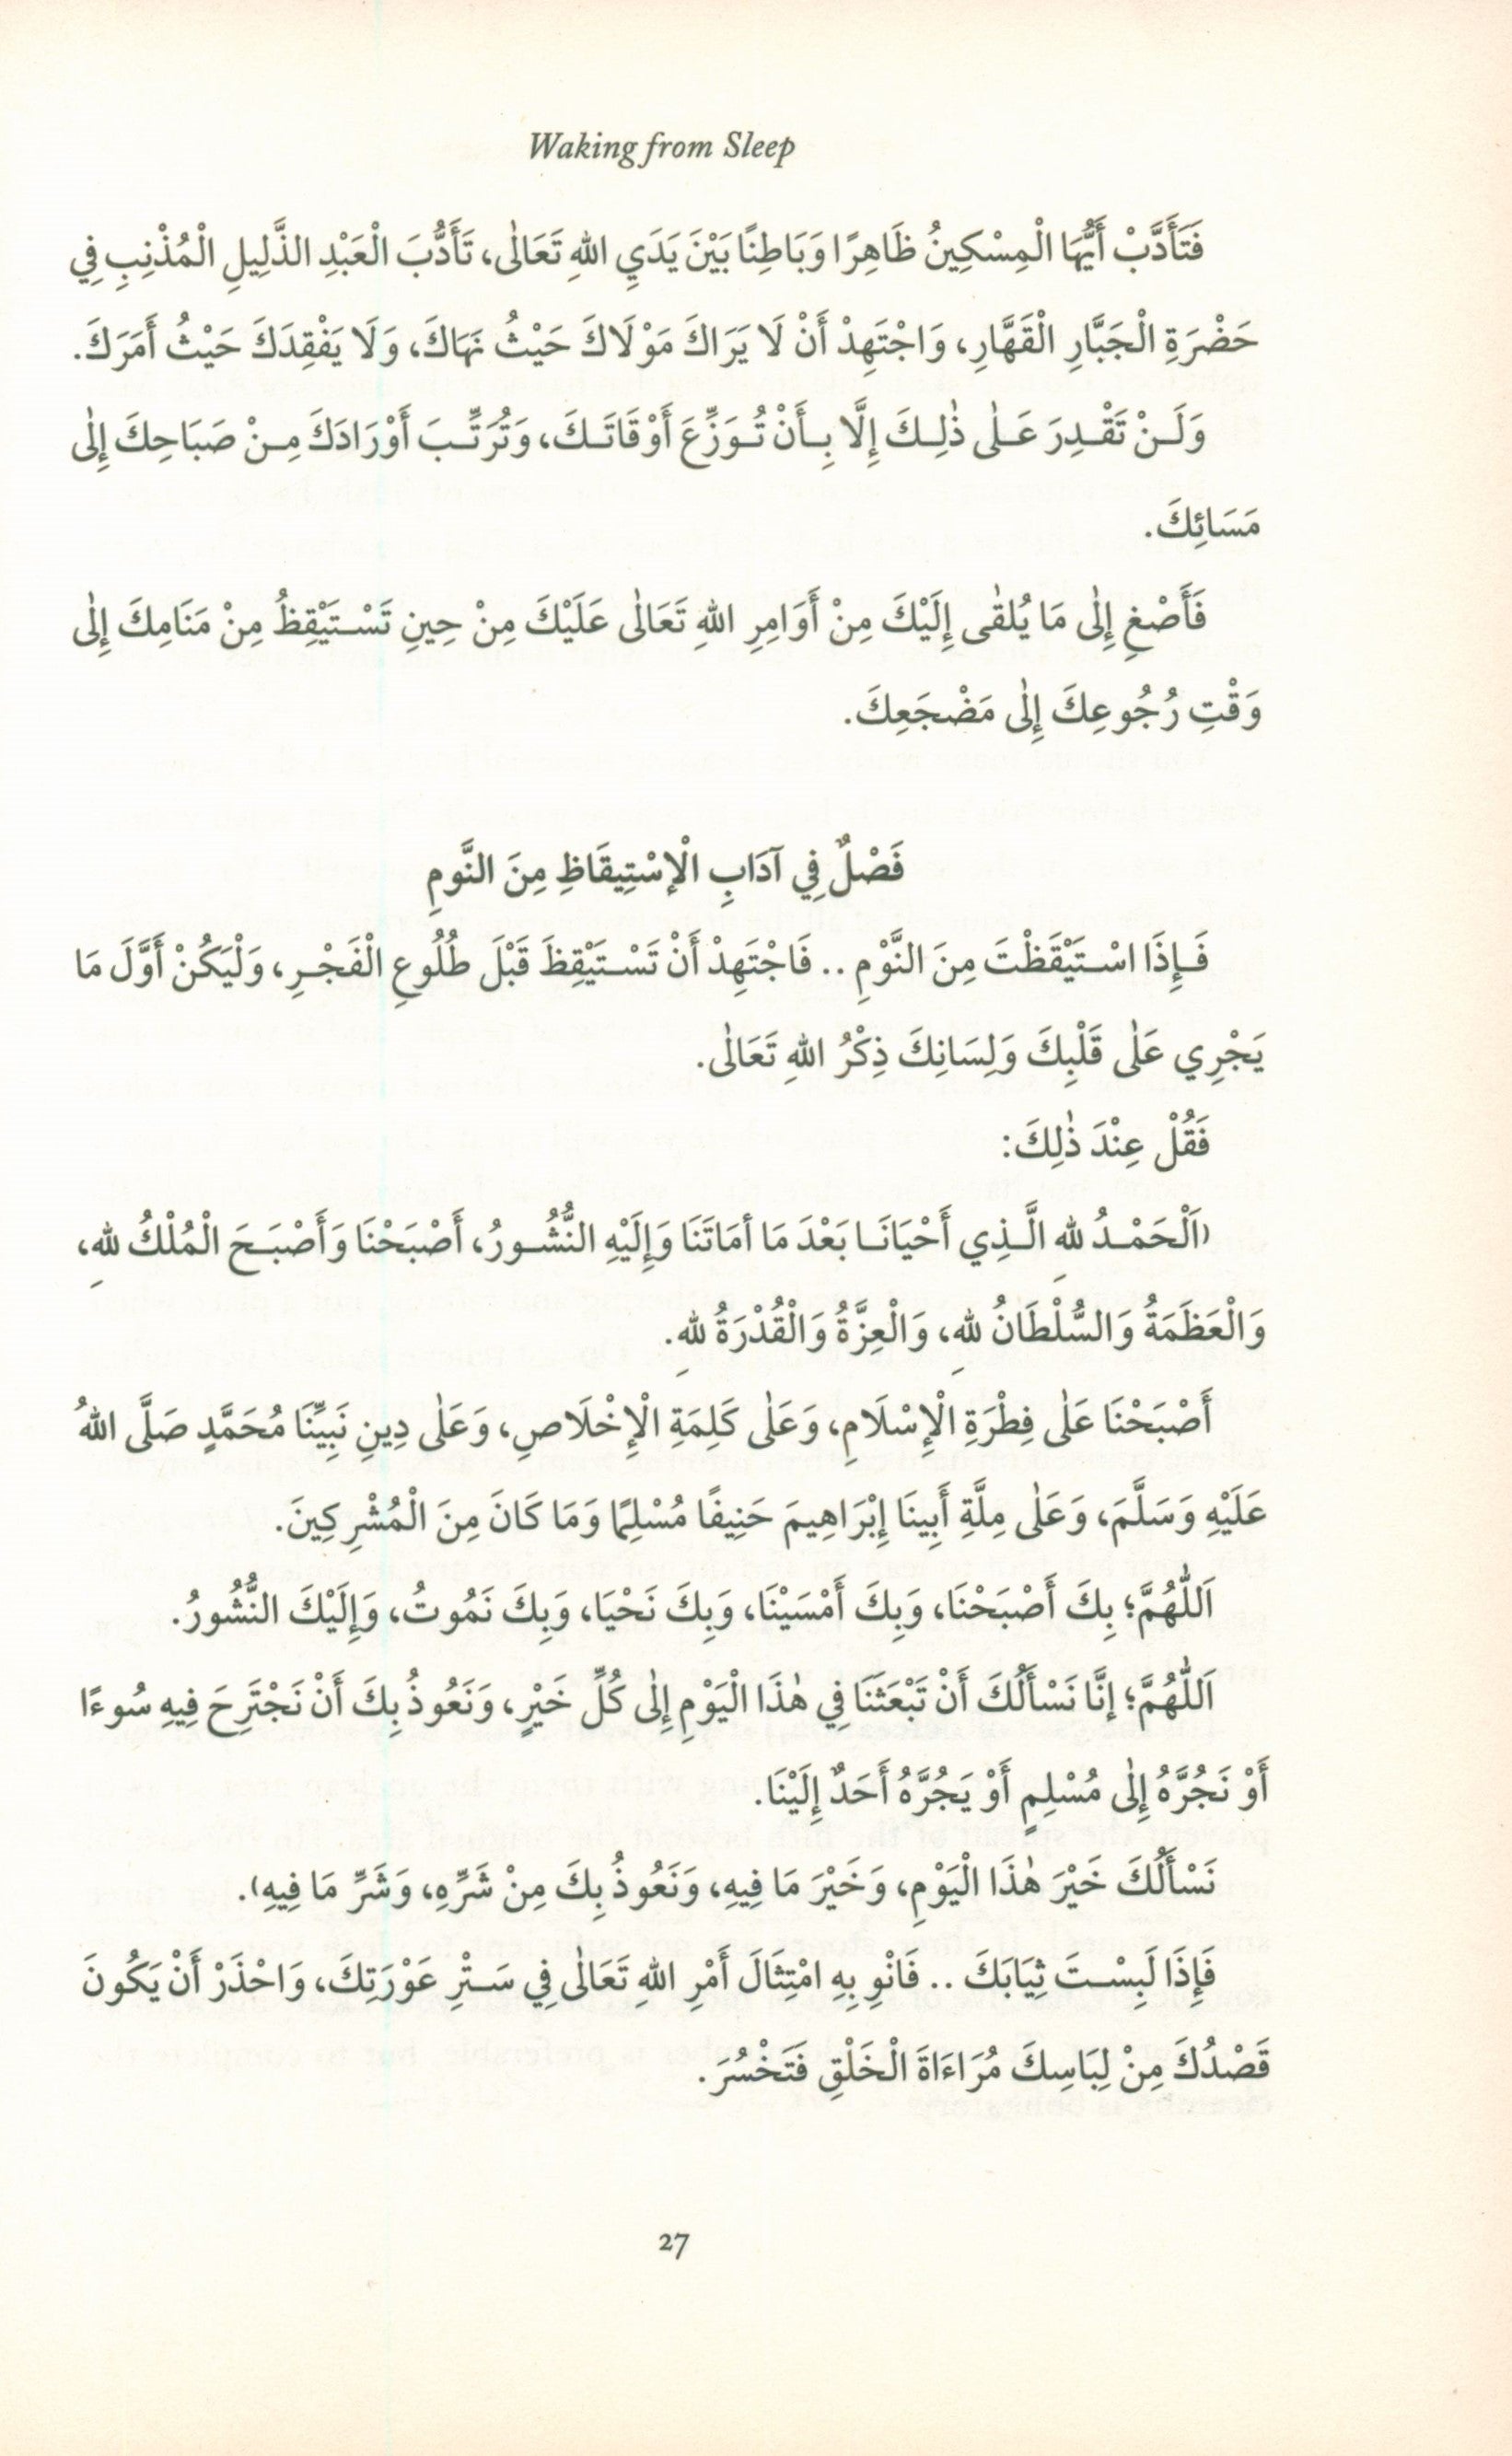 Waking from Sleep
فَتَأَدَّبْ أَيُّهَا الْمِسْكِينُ ظَاهِرًا وَبَاطِنًا بَيْنَ يَدَيِ اللهِ تَعَالٰى، تَأَدُّبَ الْعَبْدِ الذَّلِيلِ الْمُذْنِبِ فِي
حَضْرَةِ الْجَبَّارِ الْقَهَّارِ، وَاجْتَهِدْ أَنْ لَا يَرَاكَ مَوْلَاكَ حَيْثُ نَهَاكَ، وَلَا يَفْقِدَكَ حَيْثُ أَمَرَكَ.
وَلَـنْ تَقْـدِرَ عَـلٰى ذٰلِـكَ إِلَّا بِـأَنْ تُـوَزِّعَ أَوْقَاتَـكَ، وَتُرَتِّـبَ أَوْرَادَكَ مِـنْ صَبَاحِكَ إِلٰى
مَسَائِكَ.
فَأَصْغِ إِلٰى مَا يُلْقٰى إِلَيْكَ مِنْ أَوَامِرِ اللهِ تَعَالٰى عَلَيْكَ مِنْ حِينِ تَسْـتَيْقِظُ مِنْ مَنَامِكَ إِلٰى
وَقْتِ رُجُوعِكَ إِلٰى مَضْجَعِكَ.
فَصْلٌ فِي آدَابِ الْاِسْتِيقَاظِ مِنَ النَّومِ
فَـإِذَا اسْـتَيْقَظْتَ مِنَ النَّوْمِ .. فَاجْتَهِدْ أَنْ تَسْـتَيْقِظَ قَبْلَ طُلُوعِ الْفَجْـرِ، وَلْيَكُنْ أَوَّلَ مَا
يَجْرِي عَلٰى قَلْبِكَ وَلِسَانِكَ ذِكْرُ اللهِ تَعَالٰى.
فَقُلْ عِنْدَ ذٰلِكَ:
(اَلْحَمْـدُ للهِ الَّـذِي أَحْيَانَـا بَعْدَ مَا أمَاتَنَا وَإِلَيْهِ النُّشُـورُ، أَصْبَحْنَا وَأَصْبَـحَ الْمُلْكُ للهِ،
وَالْعَظَمَةُ وَالسُّلْطَانُ للهِ، وَالْعِزَّةُ وَالْقُدْرَةُ للهِ.
أَصْبَحْنَا عَلٰى فِطْرَةِ الْإِسْلَامِ، وَعَلٰى كَلِمَةِ الْإِخْلَاصِ، وَعَلٰى دِينِ نَبِيِّنَا مُحَمَّدٍ صَلَّى اللهُ
عَلَيْهِ وَسَلَّمَ، وَعَلٰى مِلَّةِ أَبِينَا إِبْرَاهِيمَ حَنِيفًا مُسْلِمًا وَمَا كَانَ مِنَ الْمُشْرِكِينَ.
اَللّٰهُمَّ؛ بِكَ أَصْبَحْنَا، وَبِكَ أَمْسَيْنَا، وَبِكَ نَحْيَا، وَبِكَ نَمُوتُ، وَإِلَيْكَ النُّشُورُ.
اَللّٰهُمَّ؛ إنَّا نَسْأَلُكَ أَنْ تَبْعَثَنَا فِي هٰذَا الْيَوْمِ إِلٰى كُلِّ خَيْرٍ، وَنَعُوذُ بِكَ أَنْ نَجْتَرِحَ فِيهِ سُوءًا
أَوْ نَجُرَّهُ إِلٰى مُسْلِمٍ أَوْ يَجُرَّهُ أَحَدٌ إِلَيْنَا.
نَسْأَلُكَ خَيْرَ هٰذَا الْيَوْمِ، وَخَيْرَ مَا فِيهِ، وَنَعُوذُ بِكَ مِنْ شَرِّهِ، وَشَرِّ مَا فِيهِ).
فَإِذَا لَبِسْـتَ ثِيَابَكَ .. فَانْوِ بِهِ امْتِثَالَ أَمْرِ اللهِ تَعَالٰى فِي سَـتْرِ عَوْرَتِكَ، وَاحْذَرْ أَنْ يَكُونَ
قَصْدُكَ مِنْ لِبَاسِكَ مُرَاءَاةَ الْخَلْقِ فَتَخْسُرَ.
27